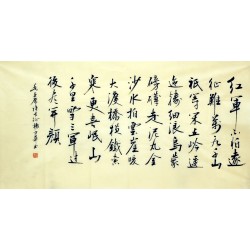 紅軍不怕遠
征難萬水千山
祇等閑五岭逶
迤騰細浪烏蒙
磅礴走泥丸金
沙水拍雲崖暖
大渡橋橫鐵索
寒更喜岷山
千里雪三軍過
後盡開顏
毛主席詩長征